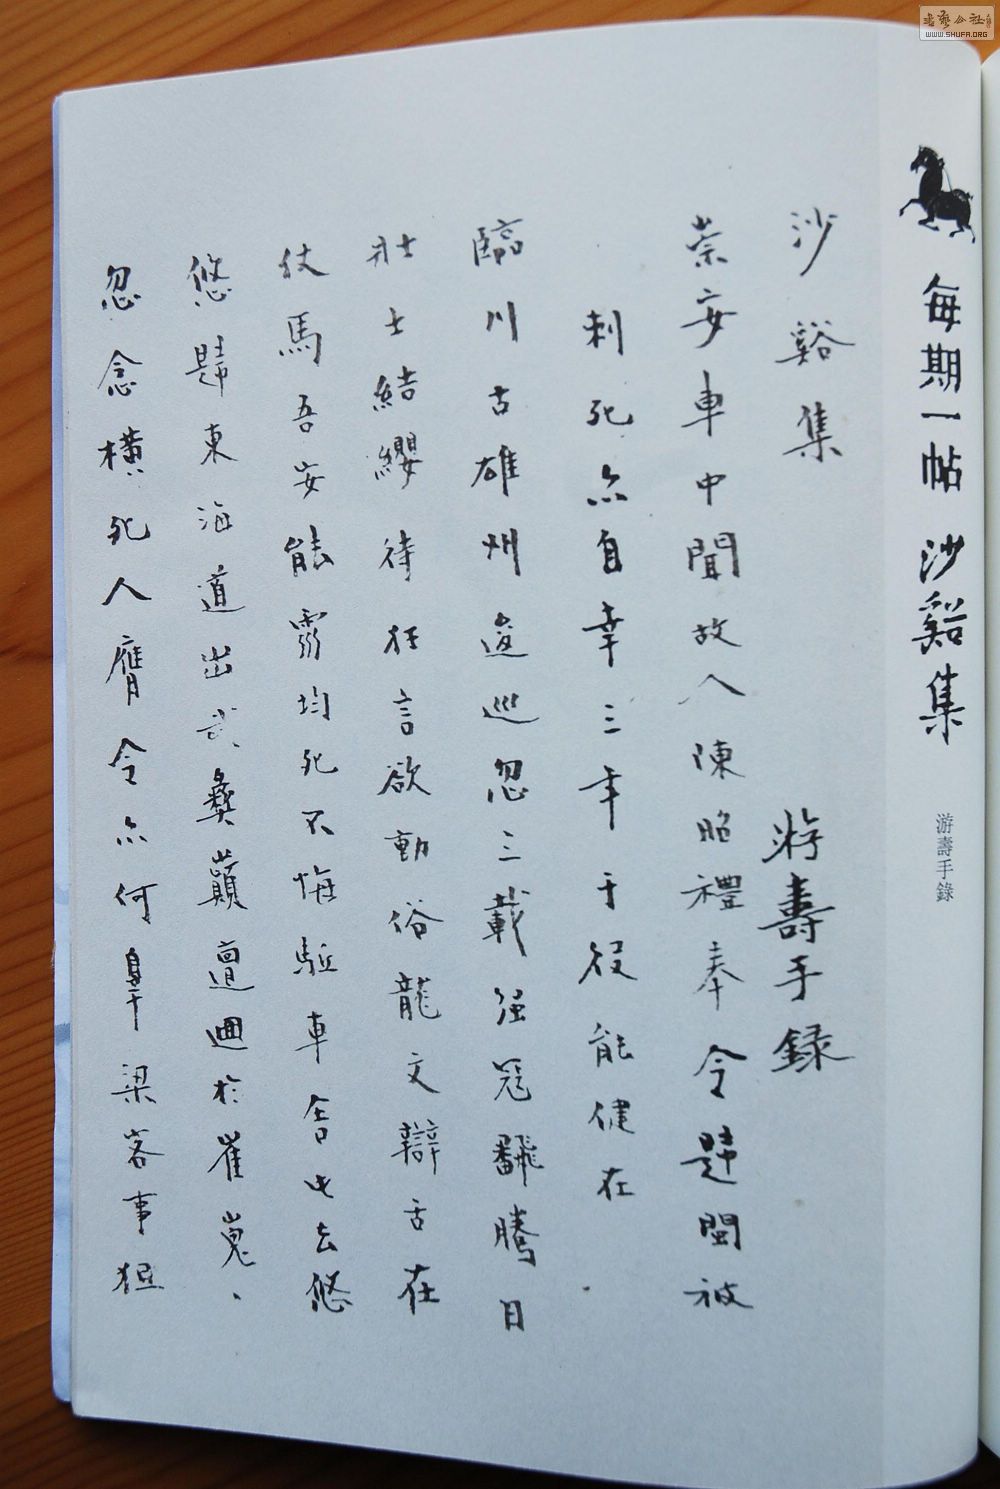 書藝公社
WWW.SHUFA.ORG
每期一帖 沙谿集
游壽手錄
沙谿集 游壽手錄
崇安車中聞故人陳昭禮奉令歸閩被
刺死亦自幸三年于役能健在
臨川古雄州逡巡忽三載强冠翻騰日
壯士結纓待狂言欲動俗龍文辯舌在
仗馬吾安能爾均死不悔驅車舍此去悠
悠歸東海道出武彝巔邅迴於崔嵬、
忽念橫死人膺令亦何辜梁客事